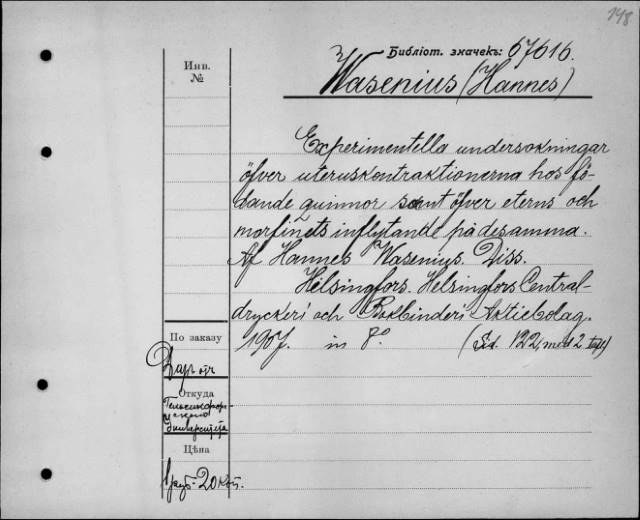 198
Библiот. значекъ: 67616.
Инв.
№
Wasenius (Hannes)
Experimentella undersökningar
öfver uteruskontraktionerna hos fö-
dande quinnor samt öfver eterns och
morfinets inflytande på desamma.
Af Hannes Wasenius. Diss.
Helsingfors. Helsingfors Central-
dryckeri och Bokbinderi Aktiebolag.
1907. in 8° (Sd. 122, med 2 tafl)
По заказу
Даръ отъ
Откуда
Гельсингфор-
скаго
Университета
Цѣна
1 руб. 20 коп.